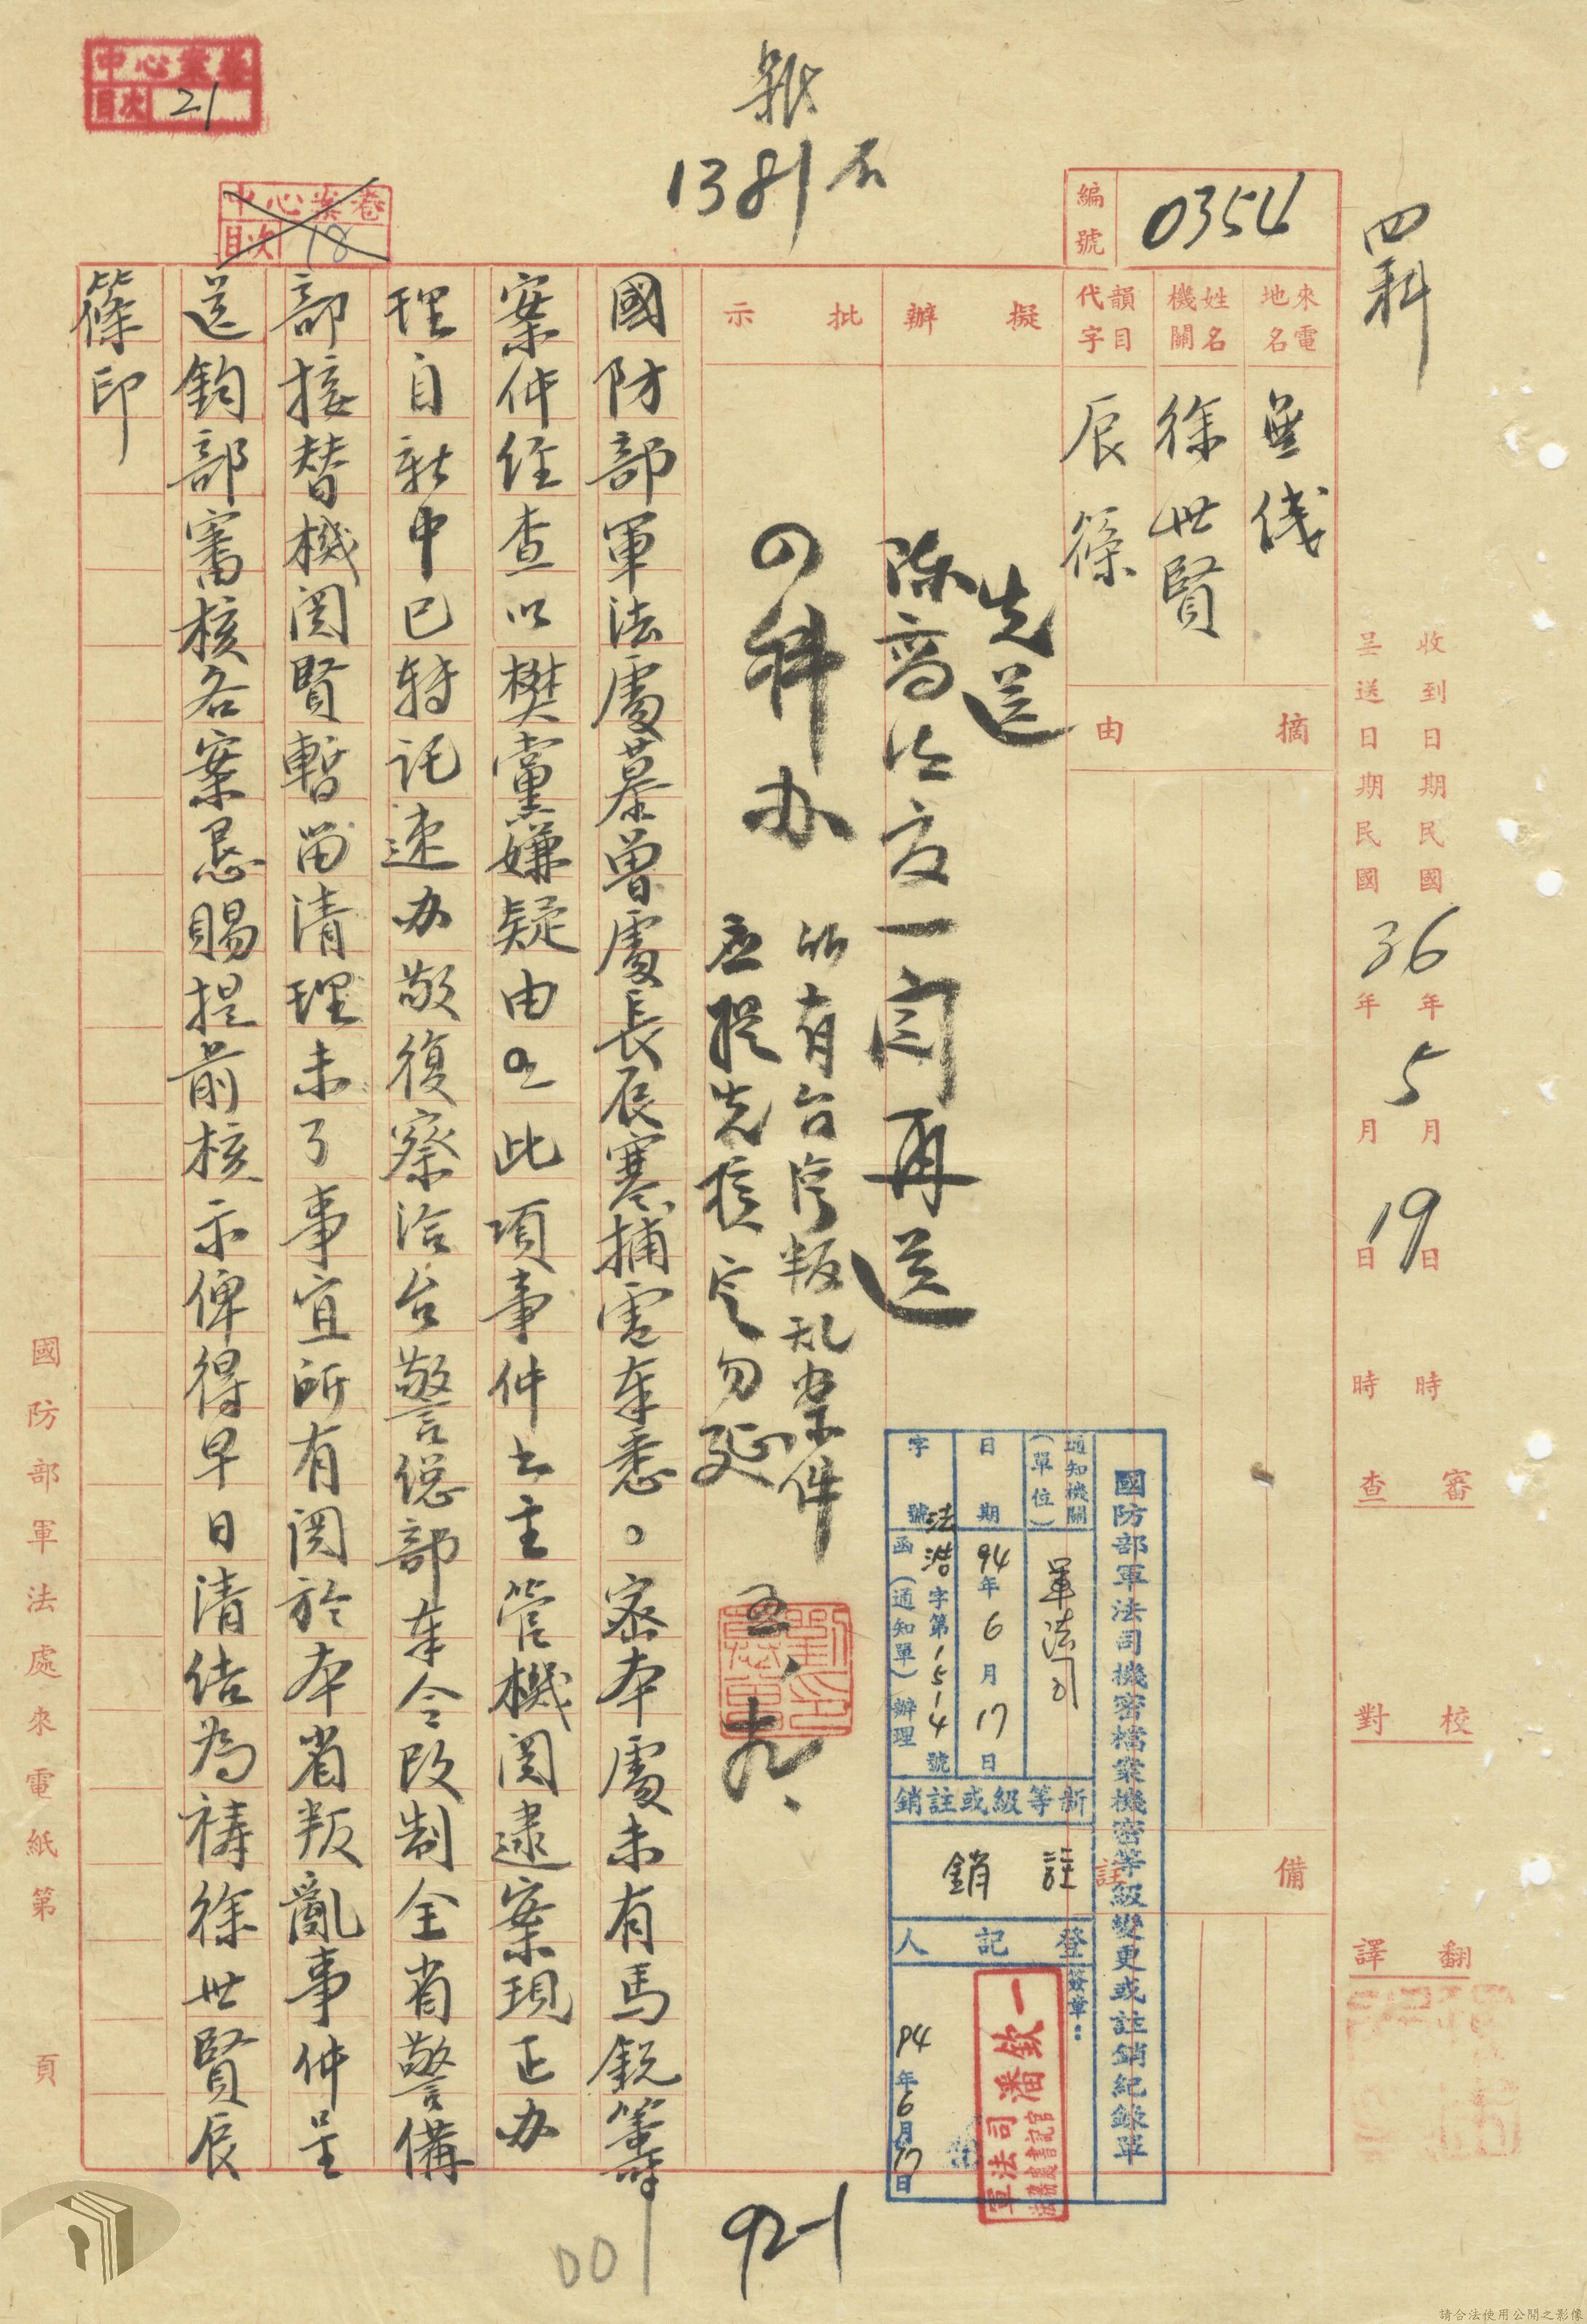 中心案卷
目次 21
中心案卷
目次 18
1381
四科
編號 0354
來電地名 無線
姓名機關 徐世賢
韻目代字 辰篠
摘由
備註
收到日期民國36年5月19日時
呈送日期民國 年 月 日 時
審查
校對
翻譯
擬辦
先送
陳高法官一閱再送
批示
四科办
所有台灣叛乱案件
应提先核定勿延
五、十九、
國防部軍法處慕曾處長辰寒捕電奉悉。密本處未有馬銳等
案件經查以樊黨嫌疑由 此項事件土主管機関逮案現正办
理自新中已轉託速办敬復察洽台警總部奉令改制全省警備
部接替機関賢暫留清理未了事宜所有関於本省叛亂事件呈
送鈞部審核各案恳賜提前核示俾得早日清结為禱徐世賢辰
篠印
國防部軍法處來電紙第 頁
國防部軍法司機密檔案機密等級變更或註銷紀錄單
通知機關(單位) 軍法司
日期 94年6月17日
字號 法浩字第1514號函(通知單)辦理
新等級或註銷
註銷
登記人
簽章:
94年6月17日
921
001
請合法使用公開之影像